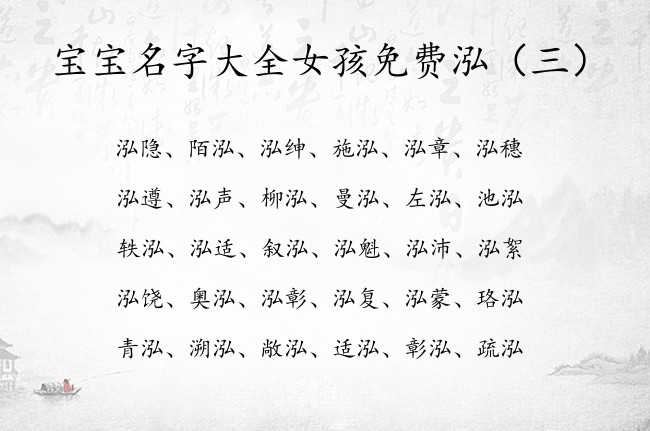 宝宝名字大全女孩免费泓（三）
泓隐、陌泓、泓绅、施泓、泓章、泓穗
泓遵、泓声、柳泓、曼泓、左泓、池泓
轶泓、泓适、叙泓、泓魁、泓沛、泓絮
泓饶、奥泓、泓彰、泓复、泓蒙、珞泓
青泓、溯泓、敞泓、适泓、彰泓、疏泓